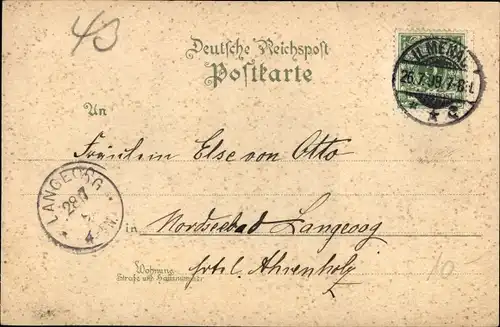 43
Deutsche Reichspost
Postkarte
ILMENAU
26.7.99.7-8N.
* * c
An
Fräulein Else von Otto
LANGEOOG
28/7
4-5N.
in Nordseebad Langeoog
Hotel Ahrenholz
Wohnung
Straße und Hausnummer
10